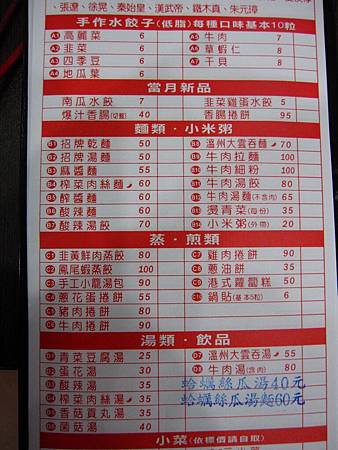 張遼、徐晃、秦始皇、漢武帝、鐵木真、朱元璋
手作水餃子(低脂)每種口味基本10粒
A1 高麗菜 6 A5 牛肉 7
A2 韭菜 6 A6 草蝦仁 8
A3 四季豆 6 A7 干貝 8
A4 地瓜葉 6
當月新品
南瓜水餃 6 韭菜雞蛋水餃 5
爆汁香腸(切盤) 40 香腸捲餅 95
麵類・小米粥
B1 招牌乾麵 50 B8 溫州大雲吞麵 70
B2 招牌湯麵 50 B9 牛肉拉麵 100
B3 麻醬麵 55 牛肉細粉 100
B4 榨菜肉絲麵 60 牛肉湯餃 80
B5 醡醬麵 60 牛肉湯麵(不含肉) 65
B6 酸辣麵 60 燙青菜(每份) 35
B7 酸辣湯餃 70 小米粥(外帶) 20
蒸・煎類
C1 韭黃鮮肉蒸餃 80 C7 雞肉捲餅 90
C2 鳳尾蝦蒸餃 100 C8 蔥油餅 35
C3 手工小籠湯包 90 C9 港式蘿蔔糕 50
C4 蔥花蛋捲餅 55 鍋貼(基本5粒) 6
C5 豬肉捲餅 80
C6 牛肉捲餅 90
湯類・飲品
D1 青菜豆腐湯 25 D7 溫州大雲吞湯 55
D2 蛋花湯 30 D8 牛肉湯(含肉) 80
D3 酸辣湯 35 蛤蠣絲瓜湯40元
D4 榨菜肉絲湯 35 蛤蠣絲瓜湯麵60元
D5 香菇貢丸湯 35
D6 菌菇湯 40
小菜(依標價請自取)